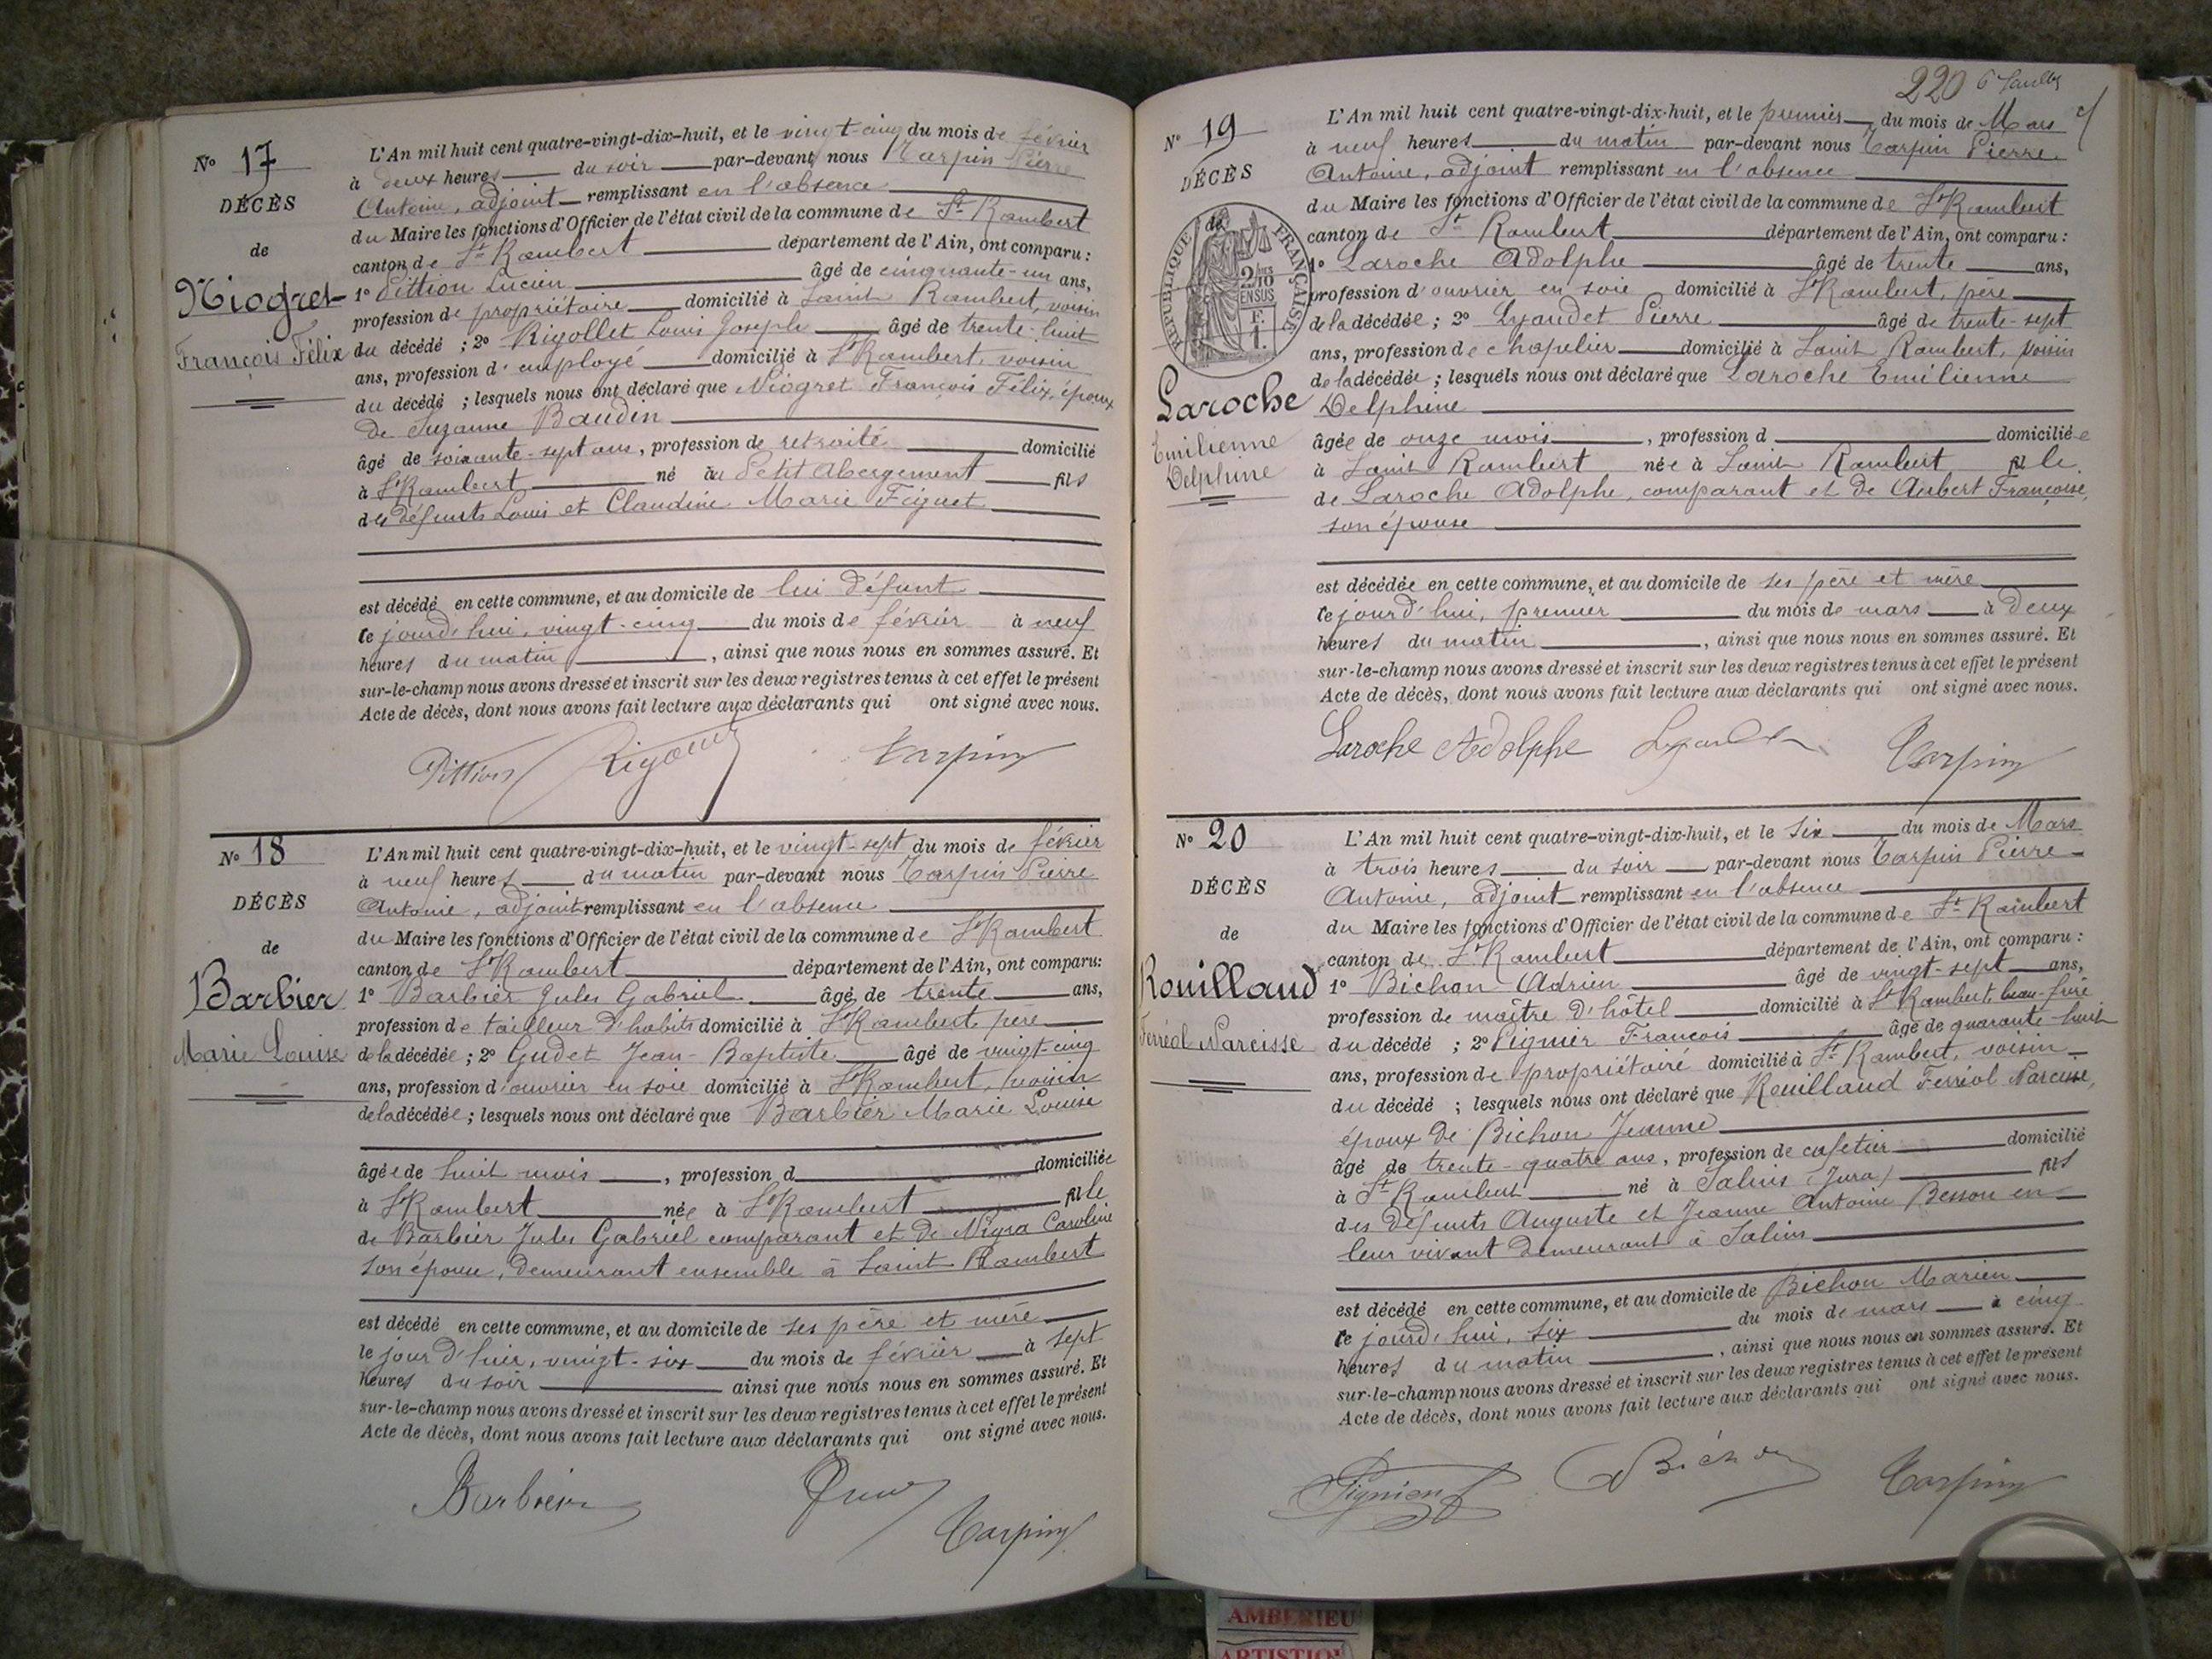 N° 17
DÉCÈS
de
Niogret
François Félix
L'An mil huit cent quatre-vingt-dix-huit, et le vingt-cinq du mois de février
à deux heures du soir par-devant nous Tarpin Pierre
Antoine, adjoint remplissant en l'absence
du Maire les fonctions d'Officier de l'état civil de la commune de St Rambert
canton de St Rambert département de l'Ain, ont comparu :
1° Pittion Lucien âgé de cinquante-un ans,
profession de propriétaire domicilié à Saint Rambert, voisin
du décédé ; 2° Rigollet Louis Joseph âgé de trente-huit
ans, profession d'employé domicilié à St Rambert, voisin
du décédé ; lesquels nous ont déclaré que Niogret François Félix, époux
de Suzanne Baudin
âgé de soixante-sept ans, profession de retraité domicilié
à St Rambert né au Petit Abergement fils
des défunts Louis et Claudine Marie Feiguet
est décédé en cette commune, et au domicile de lui défunt
le jourd'hui, vingt-cinq du mois de février à neuf
heures du matin, ainsi que nous nous en sommes assuré. Et
sur-le-champ nous avons dressé et inscrit sur les deux registres tenus à cet effet le présent
Acte de décès, dont nous avons fait lecture aux déclarants qui ont signé avec nous.
Pittion Tarpin
N° 18
DÉCÈS
de
Barbier
Marie Louise
L'An mil huit cent quatre-vingt-dix-huit, et le vingt-sept du mois de février
à neuf heures du matin par-devant nous Tarpin Pierre
Antoine, adjoint remplissant en l'absence
du Maire les fonctions d'Officier de l'état civil de la commune de St Rambert
canton de St Rambert département de l'Ain, ont comparu :
1° Barbier Jules Gabriel âgé de trente ans,
profession de tailleur d'habits domicilié à St Rambert, père
de la décédée ; 2° Gudet Jean-Baptiste âgé de vingt-cinq
ans, profession d'ouvrier en soie domicilié à St Rambert, voisin
de la décédée ; lesquels nous ont déclaré que Barbier Marie Louise
âgée de huit mois, profession d domiciliée
à St Rambert née à St Rambert fille
de Barbier Jules Gabriel comparant et de Nigra Caroline
son épouse, demeurant ensemble à Saint Rambert
est décédé en cette commune, et au domicile de ses père et mère
le jour d'hier, vingt-six du mois de février à sept
heures du soir ainsi que nous nous en sommes assuré. Et
sur-le-champ nous avons dressé et inscrit sur les deux registres tenus à cet effet le présent
Acte de décès, dont nous avons fait lecture aux déclarants qui ont signé avec nous.
Barbier Tarpin
220
N° 19
DÉCÈS
de
RÉPUBLIQUE FRANÇAISE
2/10
EN SUS
F.
1.
Laroche
Emilienne
Delphine
L'An mil huit cent quatre-vingt-dix-huit, et le premier du mois de Mars
à neuf heures du matin par-devant nous Tarpin Pierre
Antoine, adjoint remplissant en l'absence
du Maire les fonctions d'Officier de l'état civil de la commune de St Rambert
canton de St Rambert département de l'Ain, ont comparu :
1° Laroche Adolphe âgé de trente ans,
profession d'ouvrier en soie domicilié à St Rambert, père
de la décédée ; 2° Lyaudet Pierre âgé de trente-sept
ans, profession de chapelier domicilié à Saint Rambert, voisin
de la décédée ; lesquels nous ont déclaré que Laroche Emilienne
Delphine
âgée de onze mois, profession d domiciliée
à Saint Rambert née à Saint Rambert fille
de Laroche Adolphe, comparant et de Aubert Françoise,
son épouse
est décédée en cette commune, et au domicile de ses père et mère
le jourd'hui, premier du mois de mars à deux
heures du matin, ainsi que nous nous en sommes assuré. Et
sur-le-champ nous avons dressé et inscrit sur les deux registres tenus à cet effet le présent
Acte de décès, dont nous avons fait lecture aux déclarants qui ont signé avec nous.
Laroche Adolphe Tarpin
N° 20
DÉCÈS
de
Rouilland
Ferréol Narcisse
L'An mil huit cent quatre-vingt-dix-huit, et le six du mois de Mars
à trois heures du soir par-devant nous Tarpin Pierre
Antoine, adjoint remplissant en l'absence
du Maire les fonctions d'Officier de l'état civil de la commune de St Rambert
canton de St Rambert département de l'Ain, ont comparu :
1° Bichon Adrien âgé de vingt-sept ans,
profession de maître d'hôtel domicilié à St Rambert, beau-frère
du décédé ; 2° Pignier François âgé de quarante-huit
ans, profession de propriétaire domicilié à St Rambert, voisin
du décédé ; lesquels nous ont déclaré que Rouilland Ferréol Narcisse,
époux de Bichon Jeanne
âgé de trente-quatre ans, profession de cafetier domicilié
à St Rambert né à Salins (Jura) fils
des défunts Auguste et Jeanne Antoine Besson en
leur vivant demeurant à Salins
est décédé en cette commune, et au domicile de Bichon Marien
le jourd'hui, six du mois de mars à cinq
heures du matin, ainsi que nous nous en sommes assuré. Et
sur-le-champ nous avons dressé et inscrit sur les deux registres tenus à cet effet le présent
Acte de décès, dont nous avons fait lecture aux déclarants qui ont signé avec nous.
Pignier Bichon Tarpin
AMBERIEU